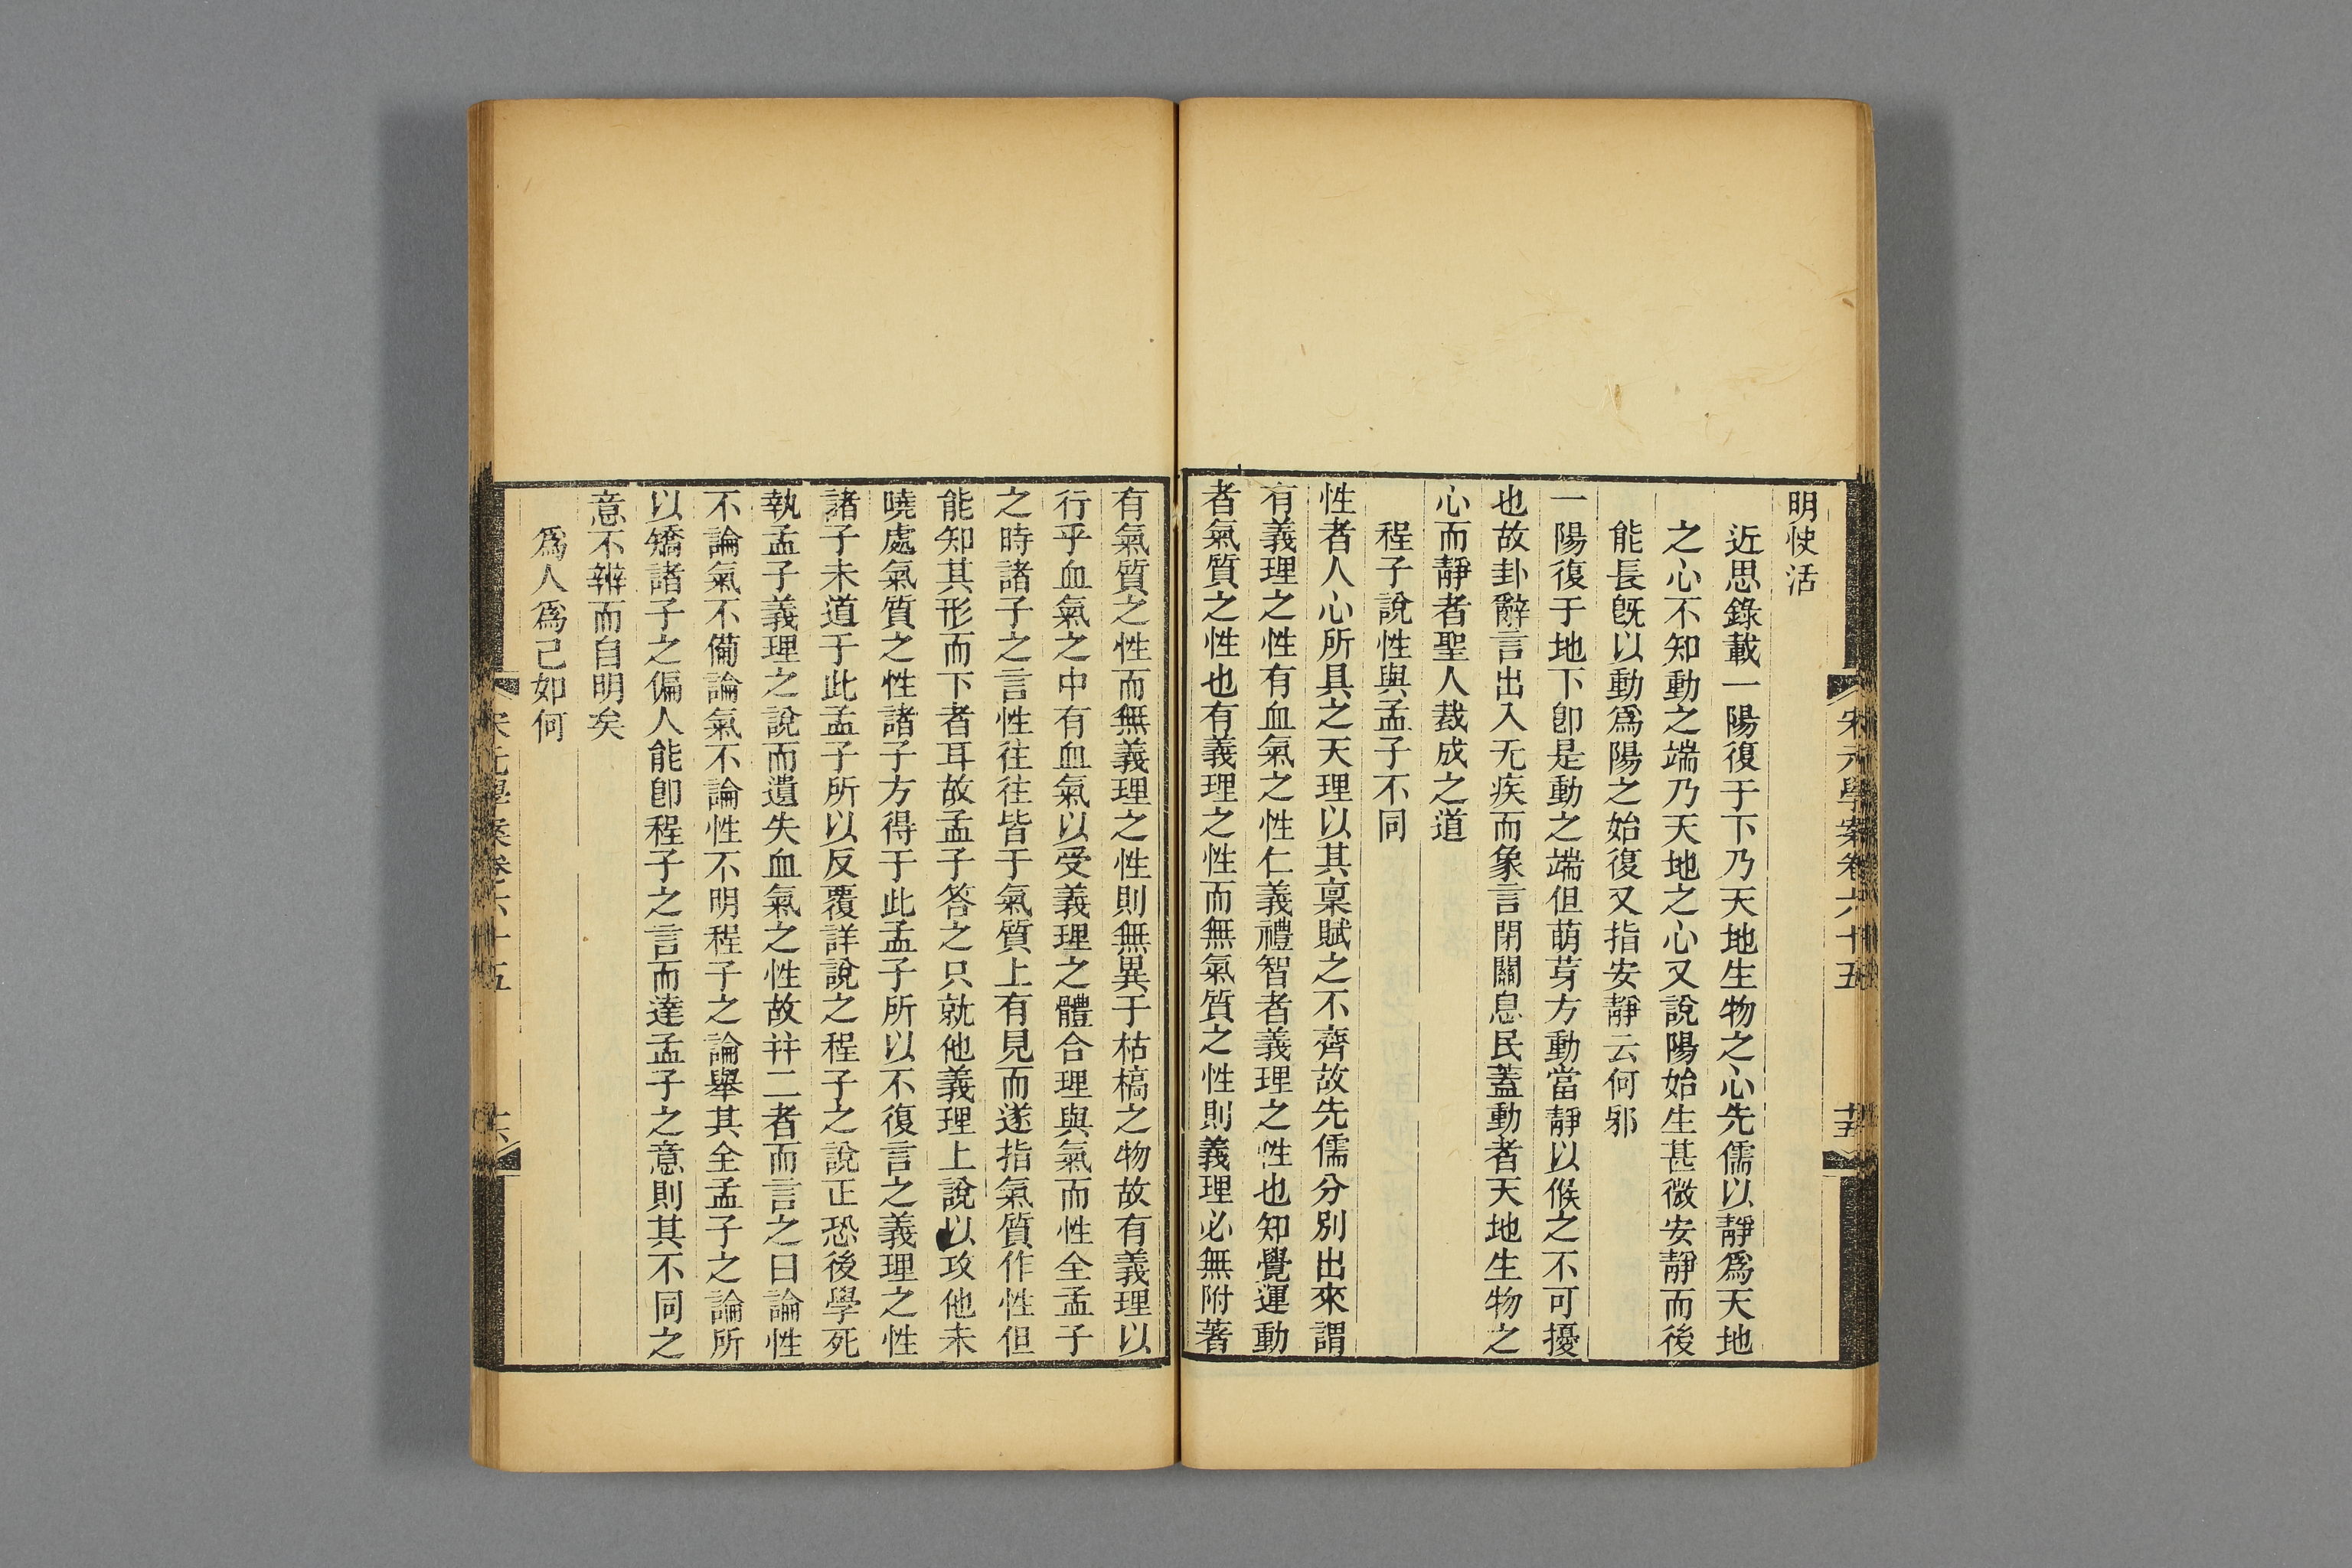 宋元學案卷六十五
十五
明快活
近思錄載一陽復于下乃天地生物之心先儒以靜爲天地
之心不知動之端乃天地之心又說陽始生甚微安靜而後
能長旣以動爲陽之始復又指安靜云何邪
一陽復于地下卽是動之端但萌芽方動當靜以候之不可擾
也故卦辭言出入无疾而象言閉關息民蓋動者天地生物之
心而靜者聖人裁成之道
程子說性與孟子不同
性者人心所具之天理以其稟賦之不齊故先儒分別出來謂
有義理之性有血氣之性仁義禮智者義理之性也知覺運動
者氣質之性也有義理之性而無氣質之性則義理必無附著
有氣質之性而無義理之性則無異于枯槁之物故有義理以
行乎血氣之中有血氣以受義理之體合理與氣而性全孟子
之時諸子之言性往往皆于氣質上有見而遂指氣質作性但
能知其形而下者耳故孟子答之只就他義理上說以攻他未
曉處氣質之性諸子方得于此孟子所以不復言之義理之性
諸子未道于此孟子所以反覆詳說之程子之說正恐後學死
執孟子義理之說而遺失血氣之性故幷二者而言之曰論性
不論氣不備論氣不論性不明程子之論舉其全孟子之論所
以矯諸子之偏人能卽程子之言而達孟子之意則其不同之
意不辨而自明矣
爲人爲己如何
宋元學案卷六十五
十六